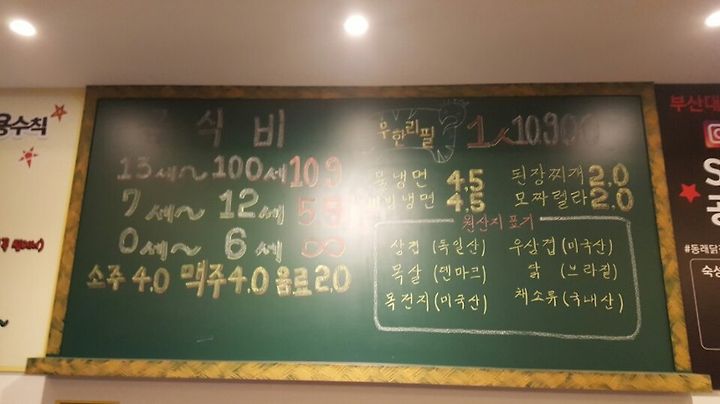 용수칙
식비
13세~ 100세 10.9
7세~ 12세
0세~ 6세
소주 4.0 맥주 4.0 음료 2.0
우한리필
1人 10.900
물냉면 4.5 된장찌개 2.0
비빔냉면 4.5 모짜렐라 2.0
원산지 표기
삼겹 (독일산) 우삼겹 (미국산)
목살 (덴마크) 닭 (브라질)
목전지 (미국산) 채소류 (국내산)
부산대
#동래닭
숙성